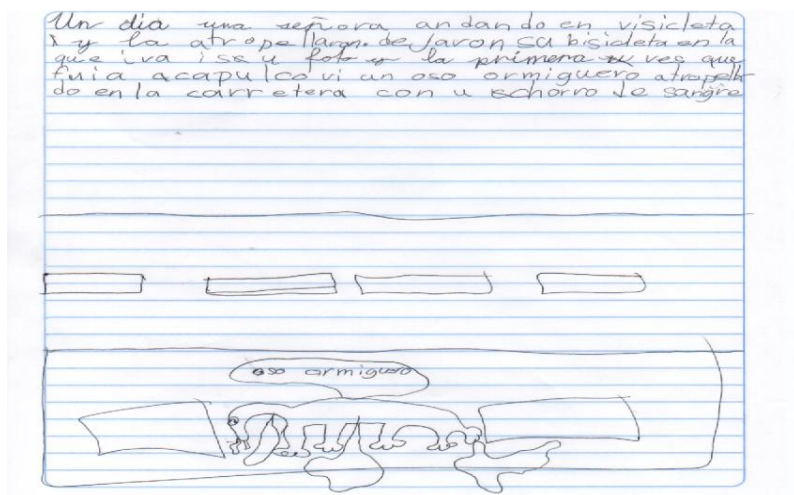 Un dia una señora andando en visicleta
y la atropellaron. dejaron su bisicleta en la
que iva i su foto y la primera ves que
fui a acapulco vi un oso ormiguero atropella
do en la carretera con u schorro de sangre
oso ormiguero